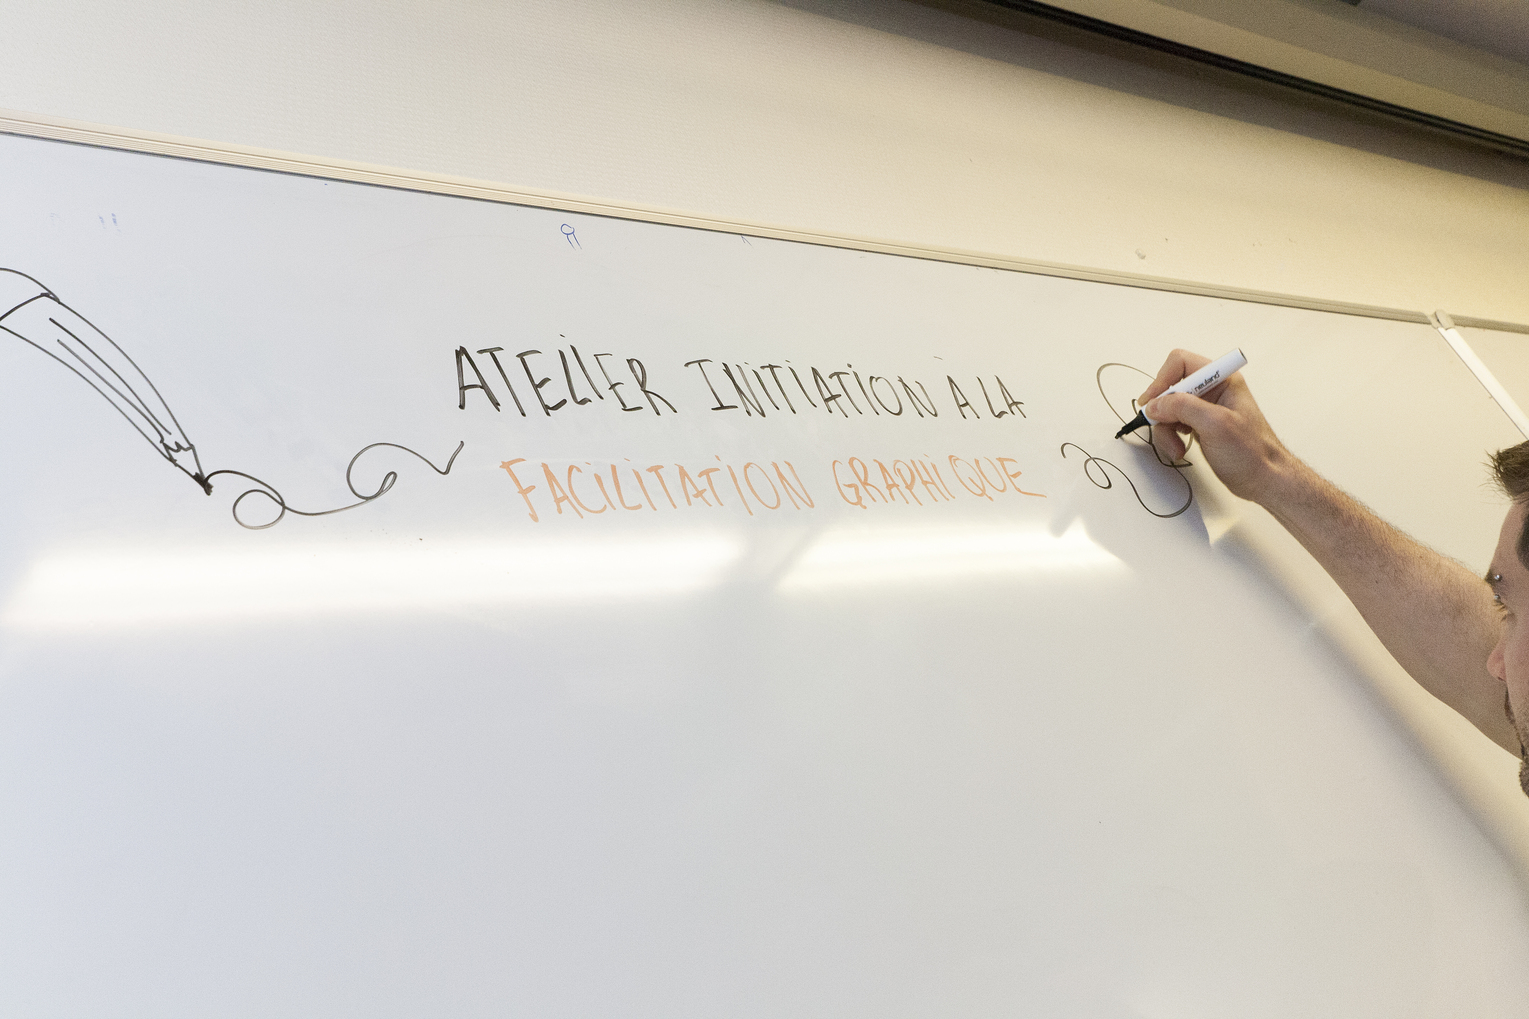 ATELIER INITIATION À LA
FACILITATION GRAPHIQUE
neuland